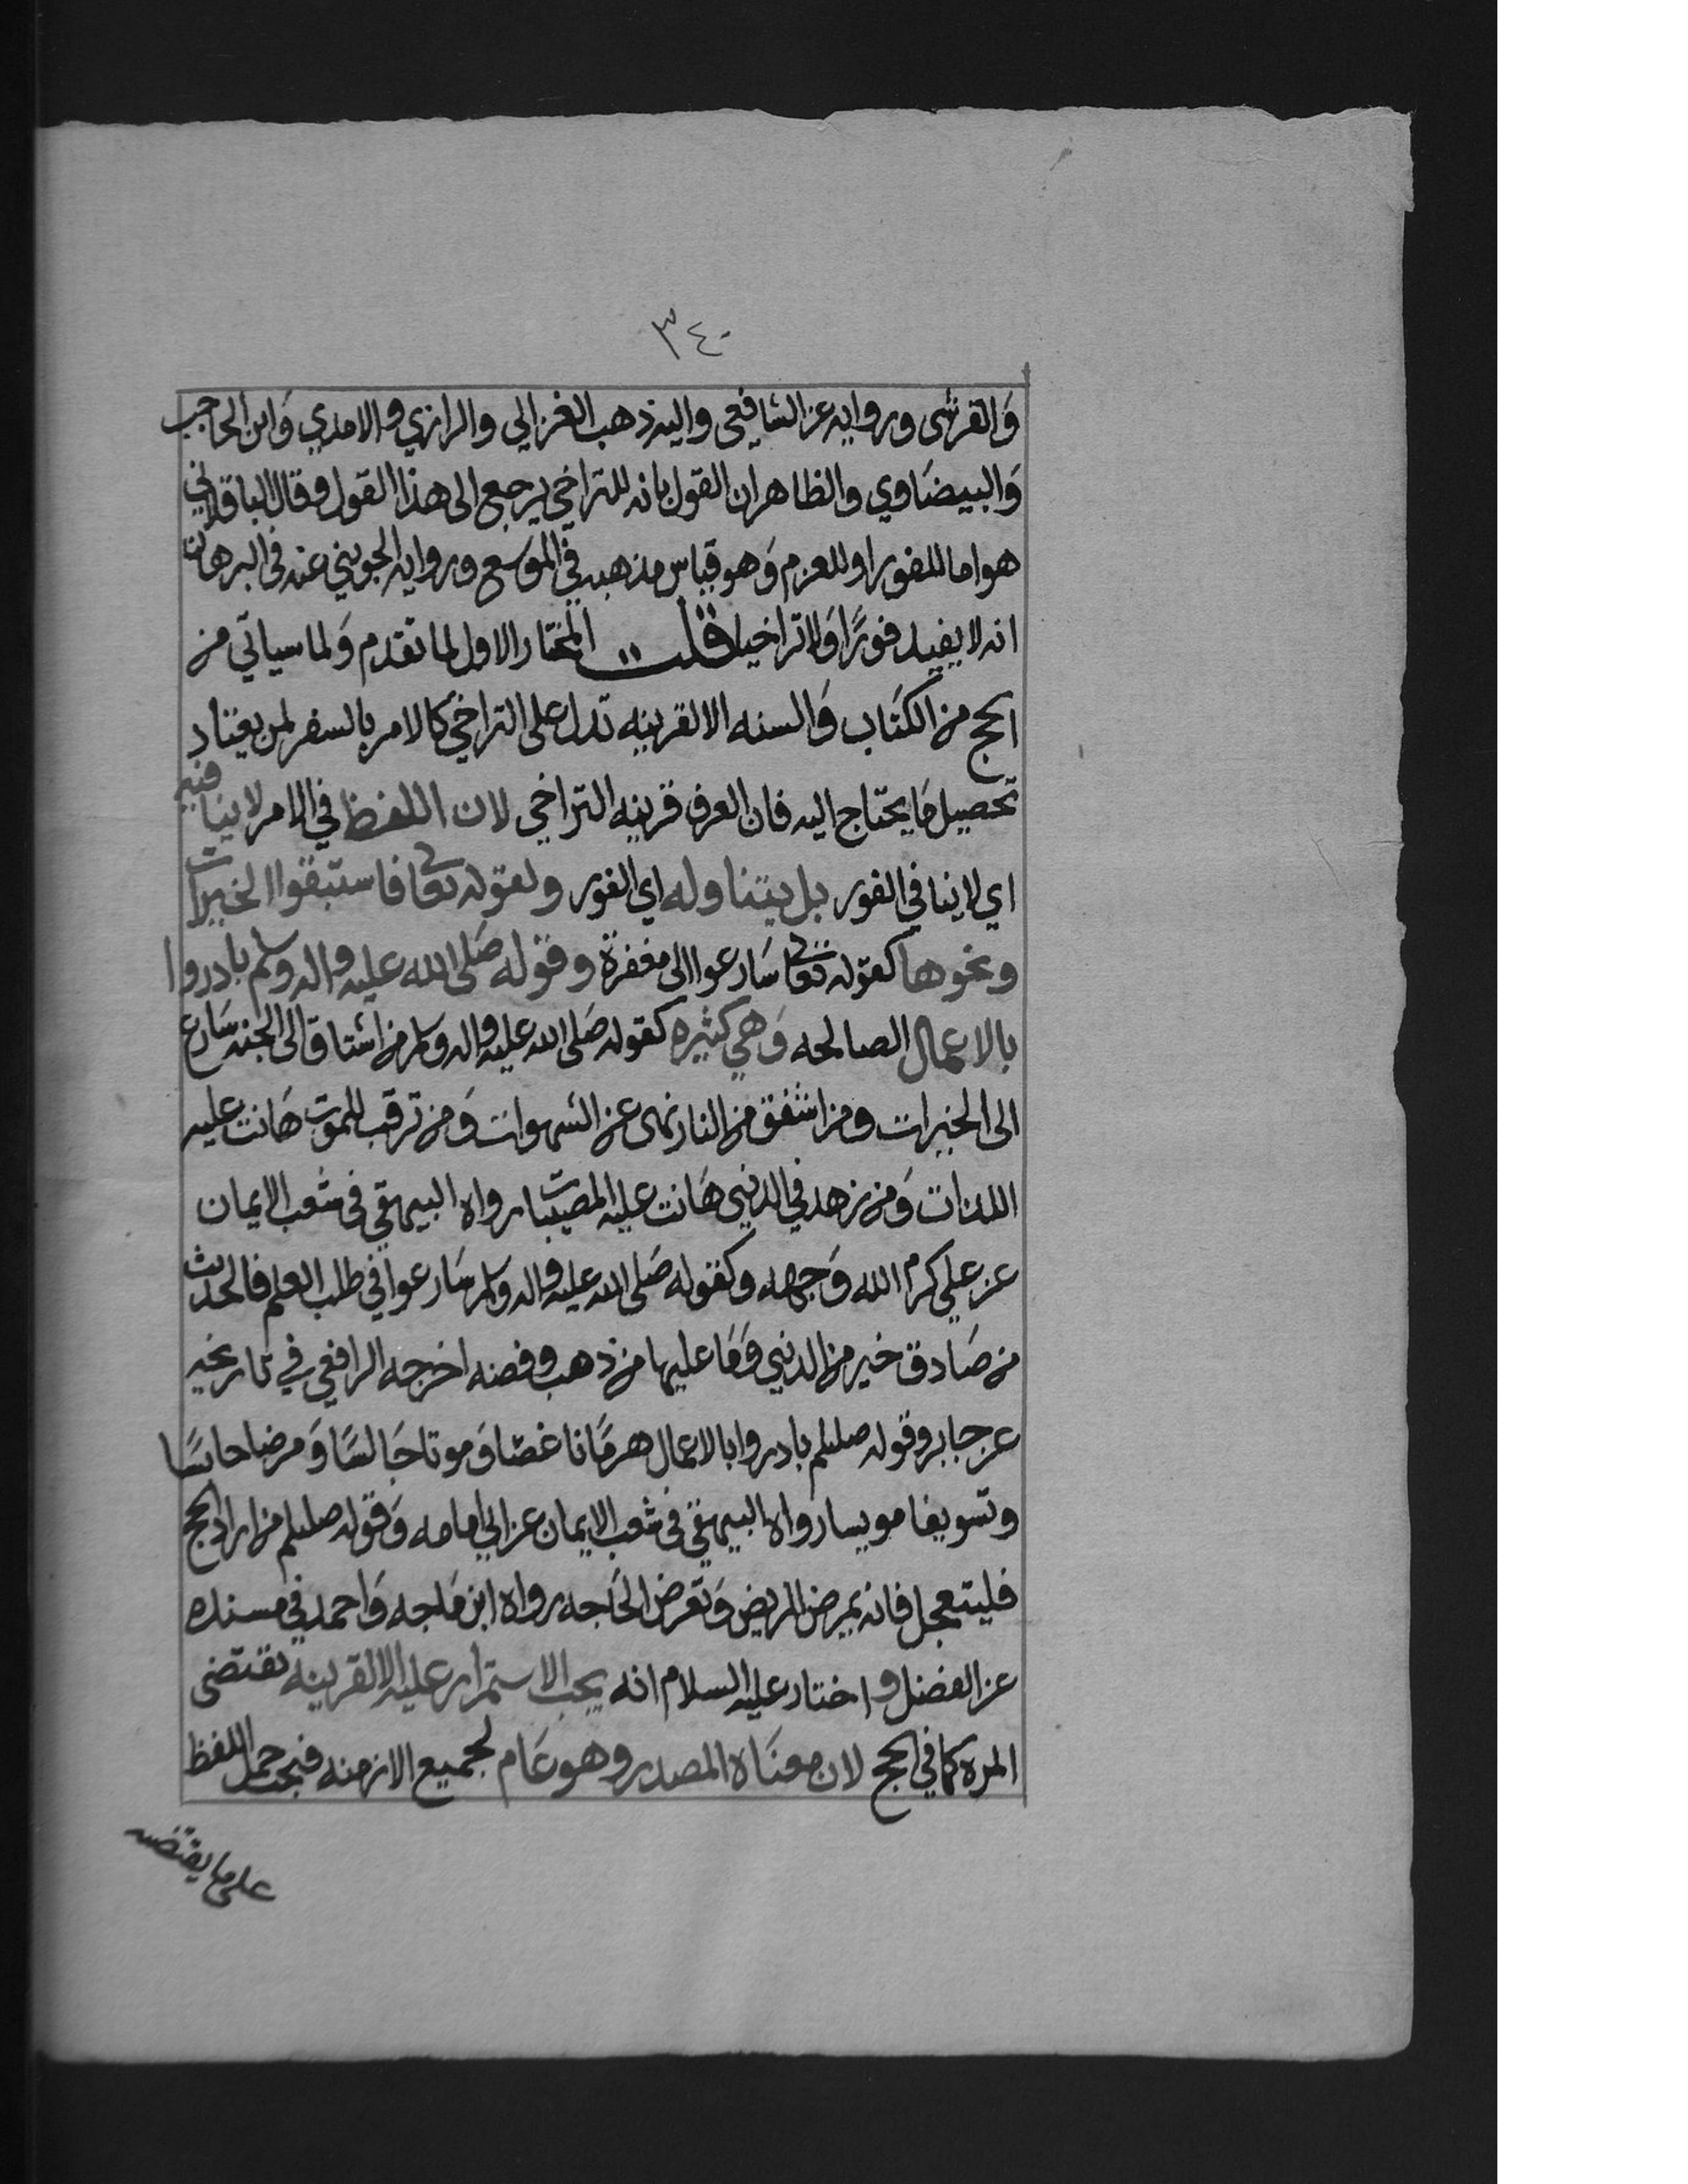 ٣٤٠
وَالقرشي وروايه عن الشافعي واليه ذهب الغزالي والرازي والامدي وَابن الحاجب
وَالبيضَاوي والظاهر ان القول بانه للتراخي يرجع الى هذا القول وقال الباقلاني
هو اما للفور او للعزم وَهو قياس مذهبه في الموَسع وروايه الجويني عنه في البرهان
انه لا يفيد فورًا وَلا تراخيا قلت المختار الاول لما تقدم وَلما سياتي من
الحج من الكتَاب وَالسنه الا لقرينه تدل على التراخي كالامر بالسفر لمن يعتاد
تحصيل مَا يحتاج اليه فان العرف قرينه التراخي لان اللفظ في الامر لا ينافيه
اي لا ينافي الفور بل يتناوله اي الفور ولقوله تعالى فاستبقوا الخيرات
ونحوها كقوله تعالى سَارعوا الى مغفرة وقوله صَلى الله عليه واله وسلم بادروا
بالاعمال الصالحه وَهي كثيره كقوله صَلى الله عليه واله وسلم من اشتاق الى الجنه سَارع
الى الخيرات ومن اشفق من النار نهى عن الشهوات وَمن ترقب للموت هَانت عليه
اللذات وَمن زهد في الدنيى هَانت عليه المصيبات رواه البيهقي في شعب الايمان
عن علي كرم الله وَجهه وكقوله صَلى الله عليه واله وسلم سَارعوا في طلب العلم فالحديث
من صَادق خير من الدنيى وَمَا عليها من ذهب وفضه اخرجه الرافعي في تاريخه
عن جابر وقوله صللم بادروا بالاعمال هرمًا ناغصًا وَموتا خَالسًا وَمرضا حابسًا
وتسويفا مويسا رواه البيهقي في شعب الايمان عن ابي امامه وَقوله صللم من اراد الحج
فليتعجل فانه يمرض المريض وَتعرض الحَاجه رواه ابن مَاجه وَاحمد في مسنده
عن الفضل واختار عليه السلام انه يجب الاستمرار عليه الا لقرينه تقتضى
المره كما في الحج لان معنَاه المصدر وهو عَام لجميع الازمنه فيجب حمل اللفظ
على ما يقتضيه